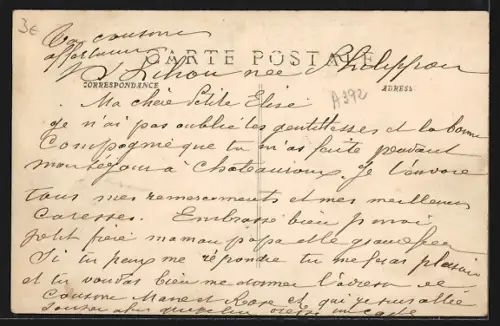 3€
Ta cousine
affectionnée
CARTE POSTALE
née Philippon
CORRESPONDANCE
ADRESSE
A392
Ma chère Petite Elise
je n'ai pas oublié tes gentillesses et la bonne
Compagnie que tu m'as faite pendant
mon séjour à Chateauroux. Je t'envoie
tous mes remerciements et mes meilleures
Caresses. Embrasse bien pr moi
petit frère maman papa et le grand père
Si tu peux me répondre tu me feras plaisir
et tu voudras bien me donner l'adresse de
Cousine Marie et Rose et qui je suis allée
carte